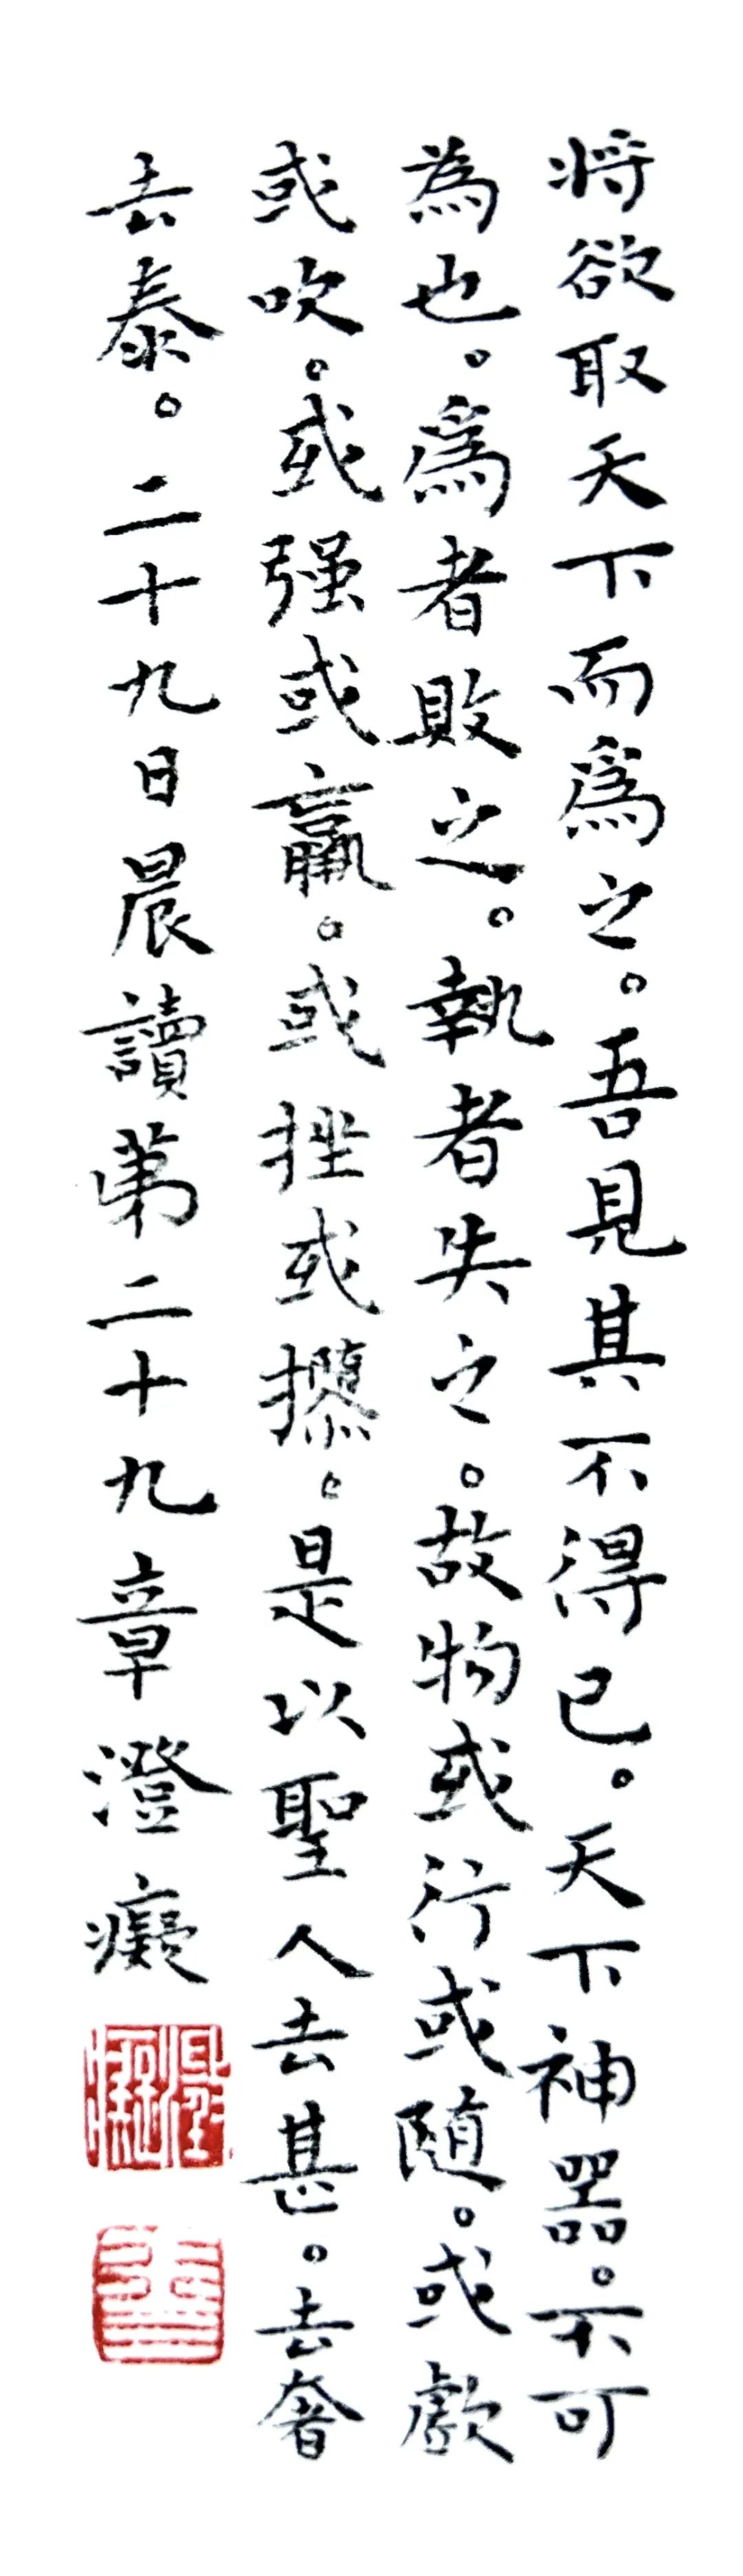 将欲取天下而爲之。吾見其不得已。天下神器。不可
為也。爲者敗之。執者失之。故物或行或随。或歔
或吹。或强或羸。或挫或。是以聖人去甚。去奢
去泰。二十九日晨讀第二十九章澄癡